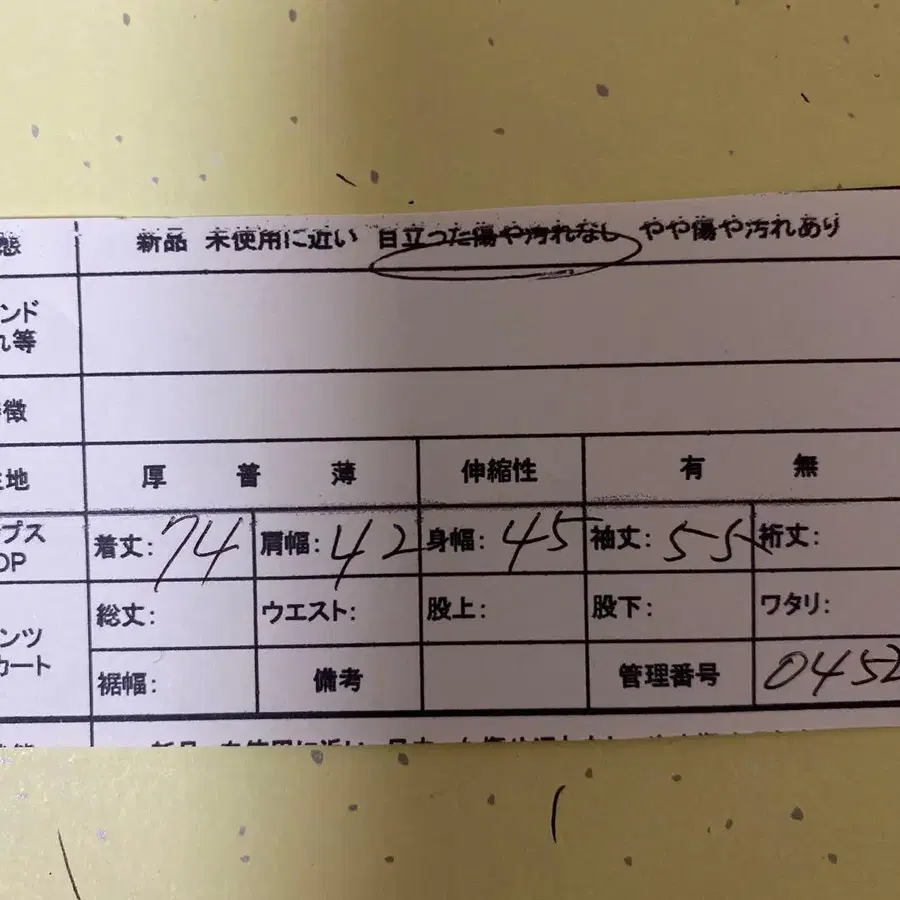 態 新品 未使用に近い 目立った傷や汚れなし やや傷や汚れあり
ンド
れ等
徴
地 厚 普 薄 伸縮性 有 無
プス
OP
着丈:74 肩幅:42 身幅:45 袖丈:55 裄丈:
総丈: ウエスト: 股上: 股下: ワタリ:
ンツ
カート
裾幅: 備考 管理番号 0452